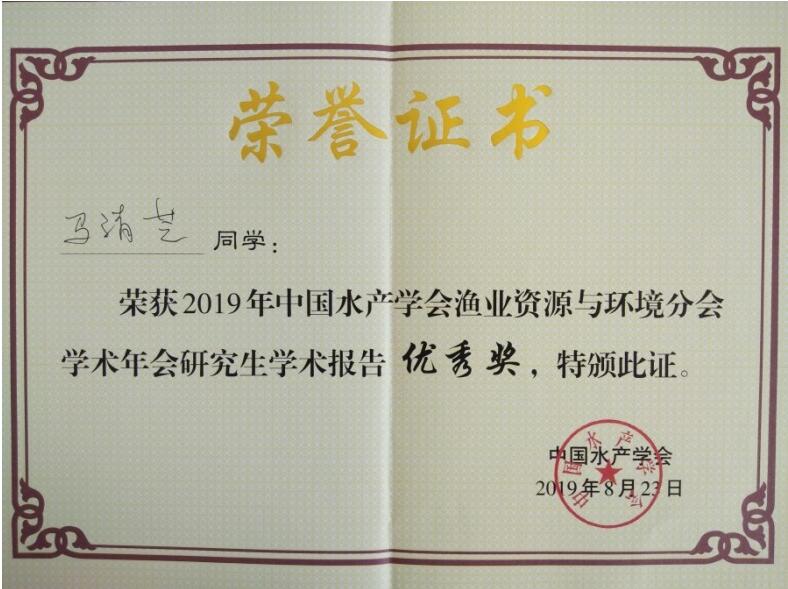 荣誉证书
马清芝 同学：
荣获2019年中国水产学会渔业资源与环境分会
学术年会研究生学术报告 优秀奖，特颁此证。
中国水产学会
2019年8月23日
中国水产学会